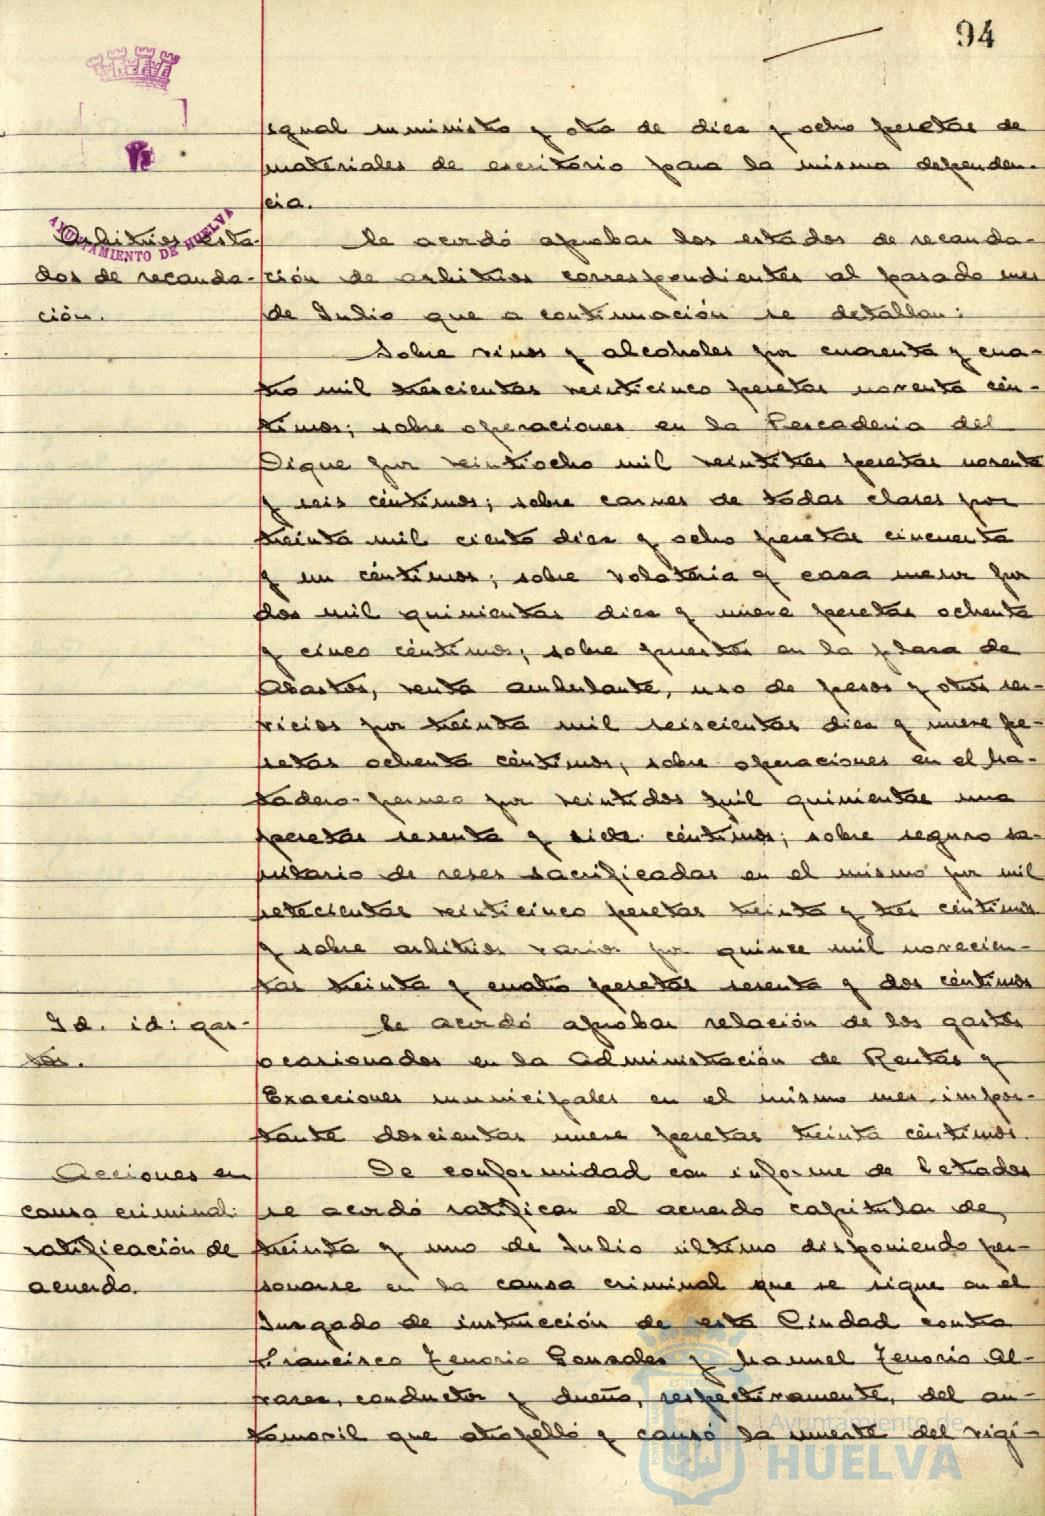 94
igual suministro y otra de diez y ocho pesetas de
materiales de escritorio para la misma dependen-
cia.
AYUNTAMIENTO DE HUELVA
Arbitrios esta-
dos de recauda-
ción.
Se acordó aprobar los estados de recauda-
ción de arbitrios correspondientes al pasado mes
de Julio que a continuación se detallan:
Sobre vinos y alcoholes por cuarenta y cua-
tro mil trescientas veinticinco pesetas noventa cén-
timos; sobre operaciones en la Pescaderia del
Dique por veintiocho mil veintitres pesetas noventa
y seis céntimos; sobre carnes de todas clases por
treinta mil ciento diez y ocho pesetas cincuenta
y un céntimos; sobre volateria y caza menor por
dos mil quinientas diez y nueve pesetas ochenta
y cinco céntimos; sobre puestos en la plaza de
Abastos, venta ambulante, uso de pesos y otros ser-
vicios por treinta mil seiscientas diez y nueve pe-
setas ochenta céntimos; sobre operaciones en el Ma-
tadero-perneo por veintidos mil quinientas una
pesetas sesenta y siete céntimos; sobre seguro sa-
nitario de reses sacrificadas en el mismo por mil
setecientas veinticinco pesetas treinta y tres céntimos
y sobre arbitrios varios por quince mil novecien-
tas treinta y cuatro pesetas sesenta y dos céntimos
Id. id: gas-
tos.
Se acordó aprobar relación de los gastos
ocasionados en la Administración de Rentas y
Exacciones municipales en el mismo mes impor-
tante doscientas nueve pesetas treinta céntimos.
Acciones en
causa criminal:
ratificación de
acuerdo.
De conformidad con informe de Letrados
se acordó ratificar el acuerdo capitular de
treinta y uno de Julio último disponiendo per-
sonarse en la causa criminal que se sigue en el
Juzgado de instrucción de esta Ciudad contra
Francisco Tenorio Gonzales y Manuel Tenorio Al-
varez, conductor y dueño, respectivamente, del au-
tomovil que atropelló y causó la muerte del vigi-
Ayuntamiento de
HUELVA